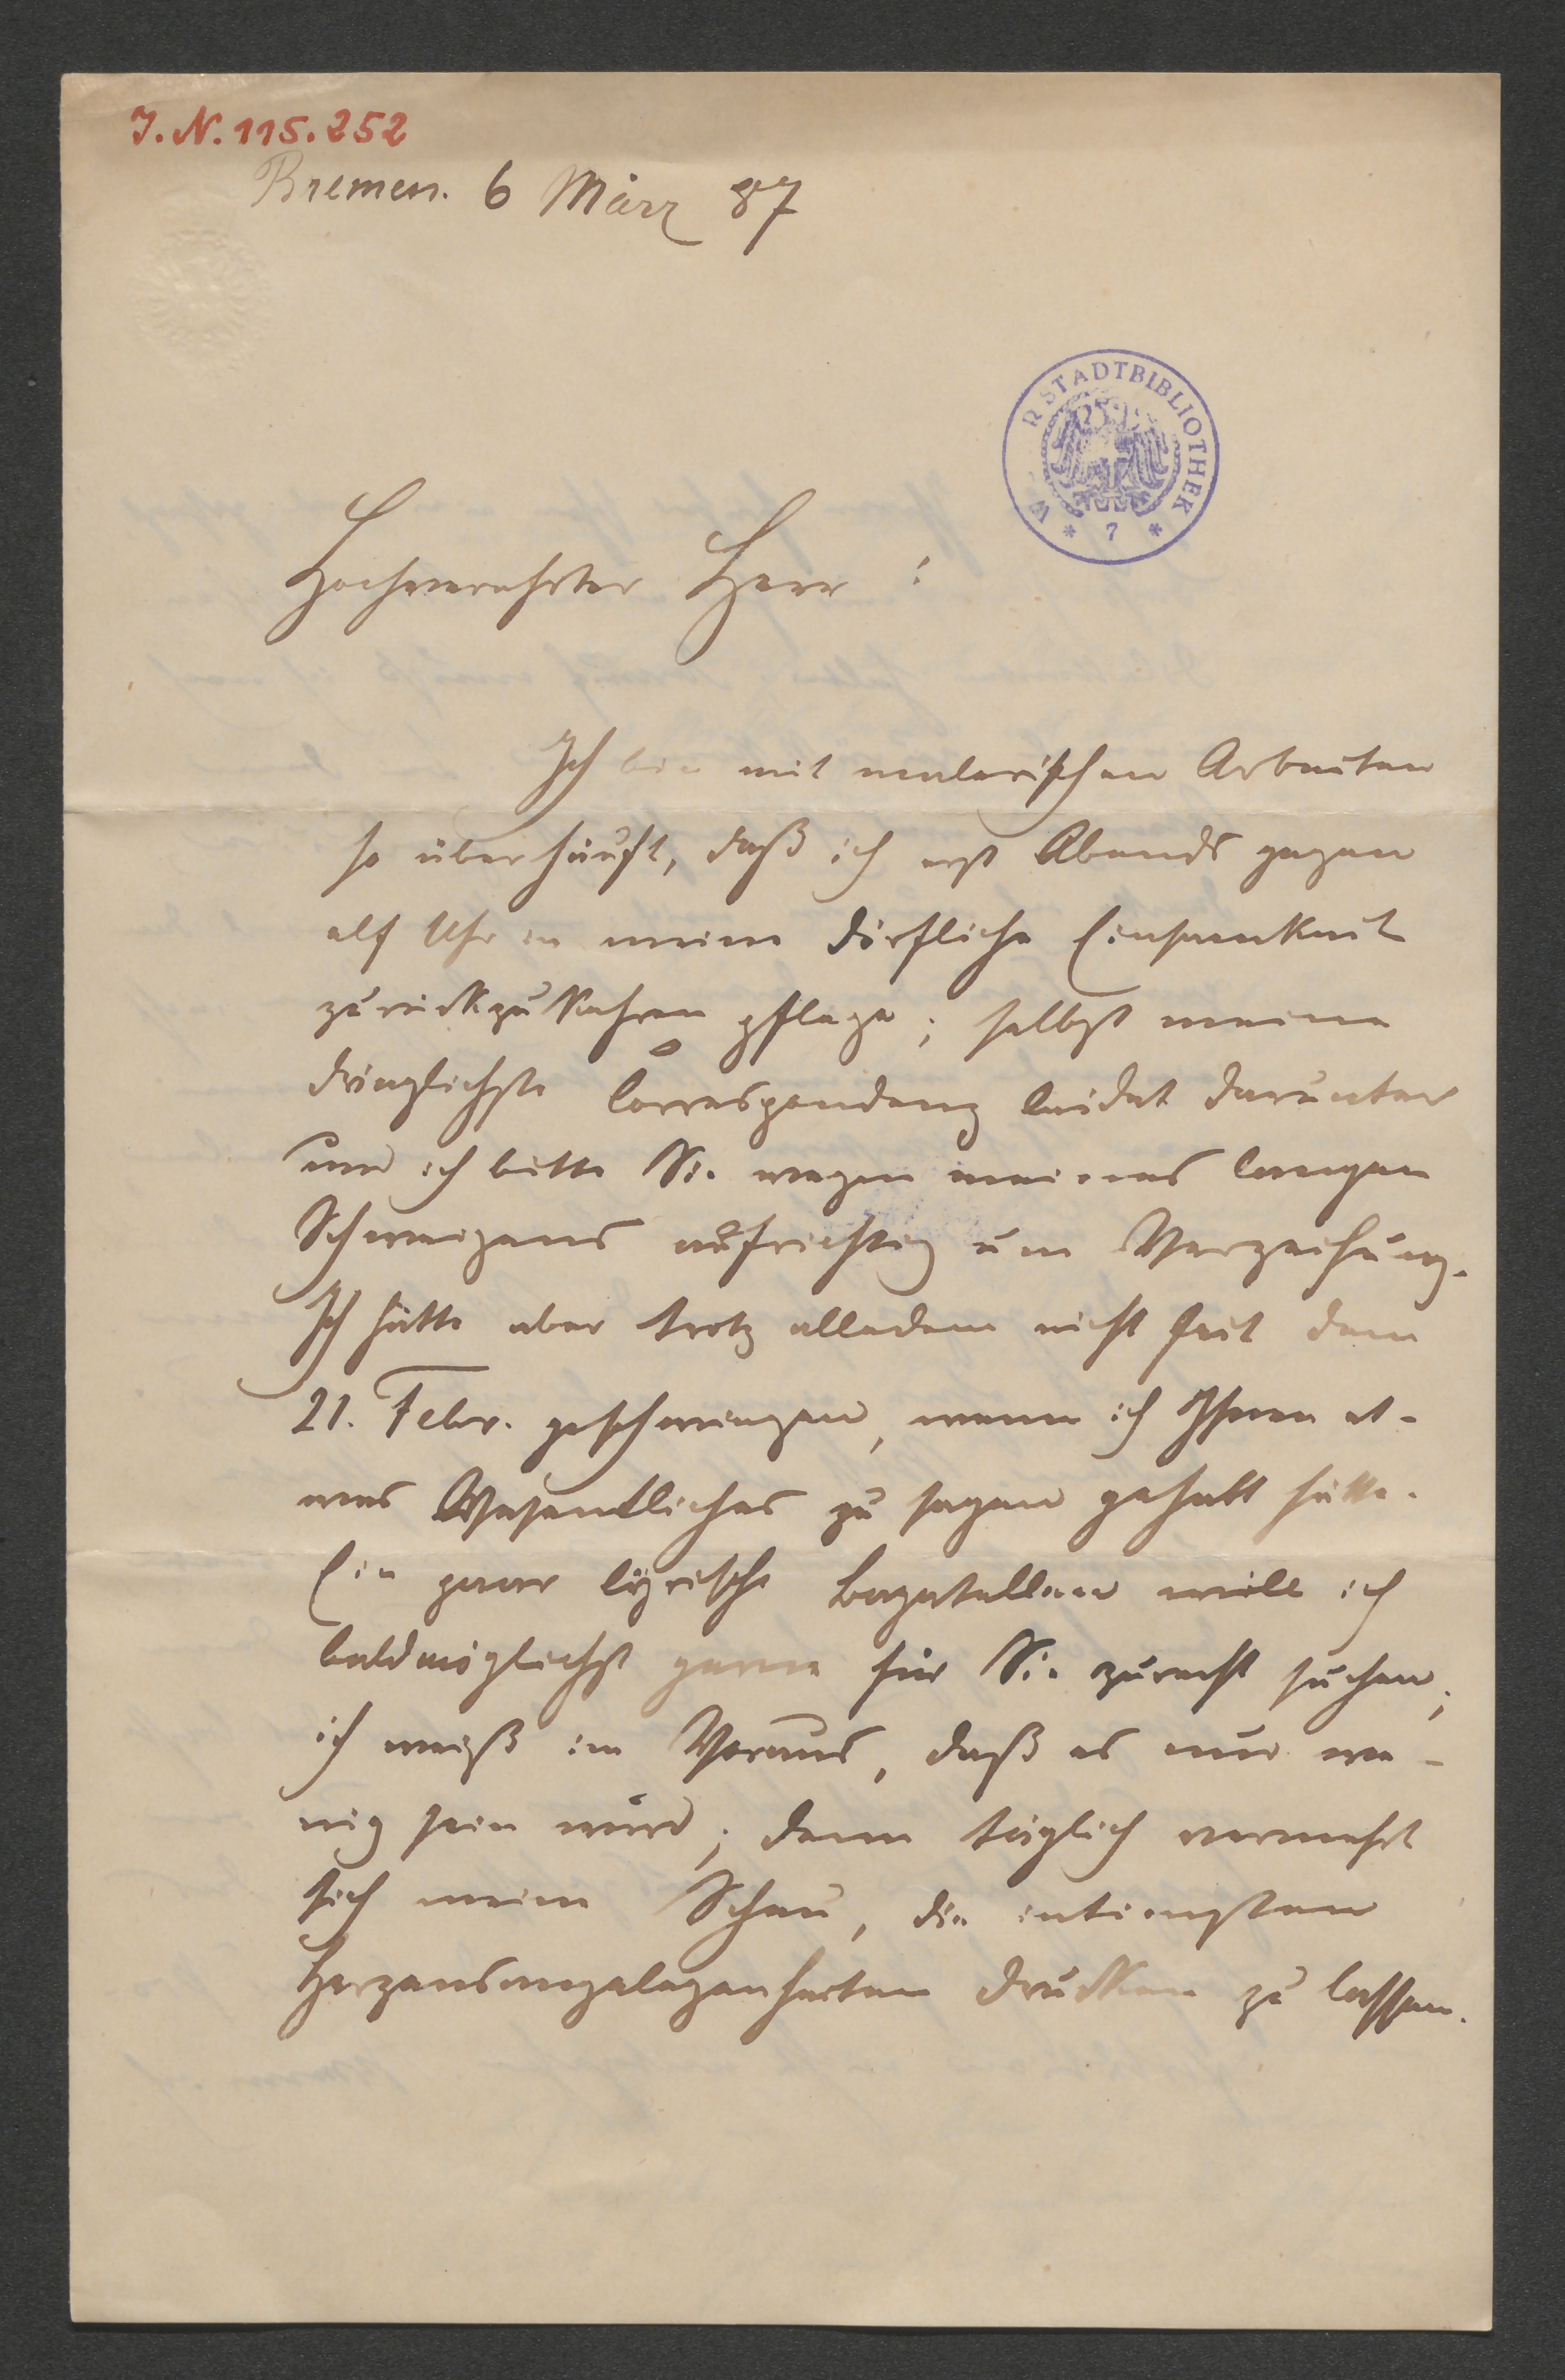 J. N. 115.252
Bremen. 6 März 87
STADTBIBLIOTHEK
* 7 *
Hochverehrter Herr :
Ich bin mit malerischen Arbeiten
so überhäuft, daß ich erst Abends gegen
elf Uhr in meine dörfliche Einsamkeit
zurückzukehren pflege; selbst meine
dringlichste Correspondenz leidet darunter
und ich bitte Sie wegen meines langen
Schweigens aufrichtig um Verzeihung.
Ich hätte aber trotz alledem nicht seit dem
21. Febr. geschwiegen, wenn ich Ihnen et-
was Wesentliches zu sagen gehabt hätte.
Ein paar lyrische Bagatellen will ich
baldmöglichst gerne für Sie zurecht suchen;
ich weiß im Voraus, daß es nur we-
nig sein wird; denn täglich vermehrt
sich meine Scheu, die intimsten
Herzensangelegenheiten drucken zu lassen.